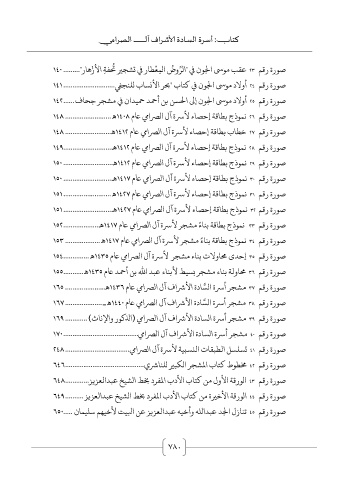 كتاب: أسرة السادة الأشراف آل الصرامي
صورة رقم ٢٣ عقب موسى الجون في "الرَّوضُ المِعْطار في تشجير تُحفةِ الأزْهار" ......... ١٤٠
صورة رقم ٢٤ أولاد موسى الجون في كتاب "بحر الأنساب للنجفي ......... ١٤١
صورة رقم ٢٥ أولاد موسى الجون إلى الحسن بن أحمد حميدان في مشجر جحاف ...... ١٤٢
صورة رقم ٢٦ نموذج بطاقة إحصاء لأسرة آل الصرامي عام ١٤٠٨هـ ......... ١٤٨
صورة رقم ٢٧ خطاب بطاقة إحصاء لأسرة آل الصرامي عام ١٤١٢هـ ......... ١٤٨
صورة رقم ٢٨ نموذج بطاقة إحصاء لأسرة آل الصرامي عام ١٤١٢هـ ......... ١٤٩
صورة رقم ٢٩ نموذج بطاقة إحصاء لأسرة آل الصرامي عام ١٤١٢هـ ......... ١٥٠
صورة رقم ٣٠ نموذج بطاقة إحصاء لأسرة آل الصرامي عام ١٤١٧هـ ......... ١٥٠
صورة رقم ٣١ نموذج بطاقة إحصاء لأسرة آل الصرامي عام ١٤٢٧هـ ......... ١٥١
صورة رقم ٣٢ نموذج بطاقة إحصاء لأسرة آل الصرامي عام ١٤٢٧هـ ......... ١٥١
صورة رقم ٣٣ نموذج بطاقة بناءُ مشجر لأسرة آل الصرامي عام ١٤١٧هـ ......... ١٥٢
صورة رقم ٣٤ نموذج بطاقة بناءُ مشجر لأسرة آل الصرامي عام ١٤١٧هـ ......... ١٥٣
صورة رقم ٣٥ إحدى محاولات بناء مشجر لأسرة آل الصرامي عام ١٤٣٥هـ ......... ١٥٤
صورة رقم ٣٦ محاولة بناء مشجر بسيط لأبناء عبد الله بن أحمد عام ١٤٣٥هـ ......... ١٥٥
صورة رقم ٣٧ مشجر أسرة السَّادة الأشراف آل الصرامي عام ١٤٣٦هـ ......... ١٦٥
صورة رقم ٣٨ مشجر أسرة السَّادة الأشراف آل الصرامي عام ١٤٤٠هـ ......... ١٦٧
صورة رقم ٣٩ مشجر أسرة السَّادة الأشراف آل الصرامي (الذكور والإناث) ......... ١٦٩
صورة رقم ٤٠ مشجر أسرة السادة الأشراف آل الصرامي ......... ١٧٠
صورة رقم ٤١ تسلسل الطبقات النسبية لأسرة آل الصرامي ......... ٢٤٨
صورة رقم ٤٢ مخطوط كتاب المشجر الكبير للناشري ......... ٦٤٦
صورة رقم ٤٣ الورقة الأول من كتاب الأدب المفرد بخط الشيخ عبدالعزيز ......... ٦٤٨
صورة رقم ٤٤ الورقة الأخيرة من كتاب الأدب المفرد بخط الشيخ عبدالعزيز ......... ٦٤٩
صورة رقم ٤٥ تنازل الجد عبدالله وأخيه عبدالعزيز عن البيت لأخيهم سليمان ..... ٦٥٠
٧٨٠